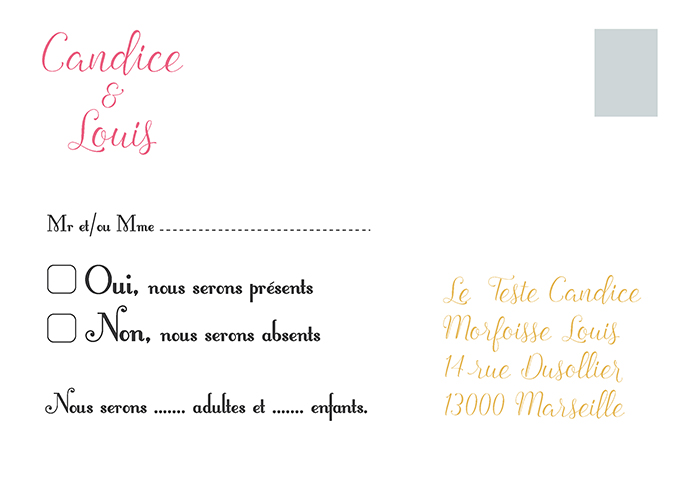 Candice
&
Louis
Mr et/ou Mme ------------------------------
Oui, nous serons présents
Non, nous serons absents
Nous serons ....... adultes et ....... enfants.
Le Teste Candice
Morfoisse Louis
14 rue Dusollier
13000 Marseille